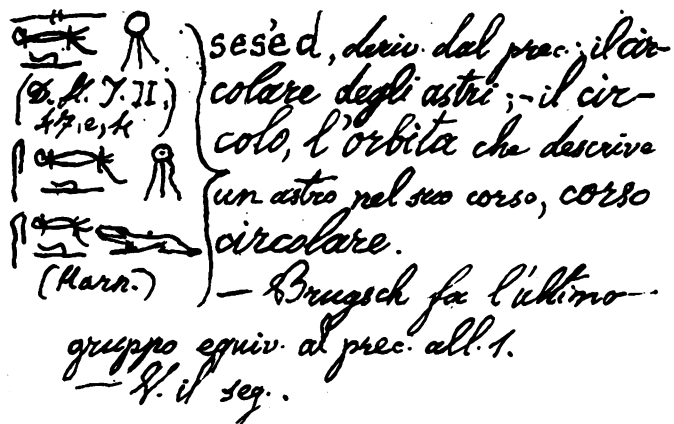 seśèd, deriv. dal prec.; il cir-
(D. H. J. II. colare degli astri; - il cir-
47, e, 4) colo, l'orbita che descrive
un astro nel suo corso, corso
circolare.
(Harr.) — Brugsch fa l'ultimo
gruppo equiv. al prec. all. 1.
— V. il seg..